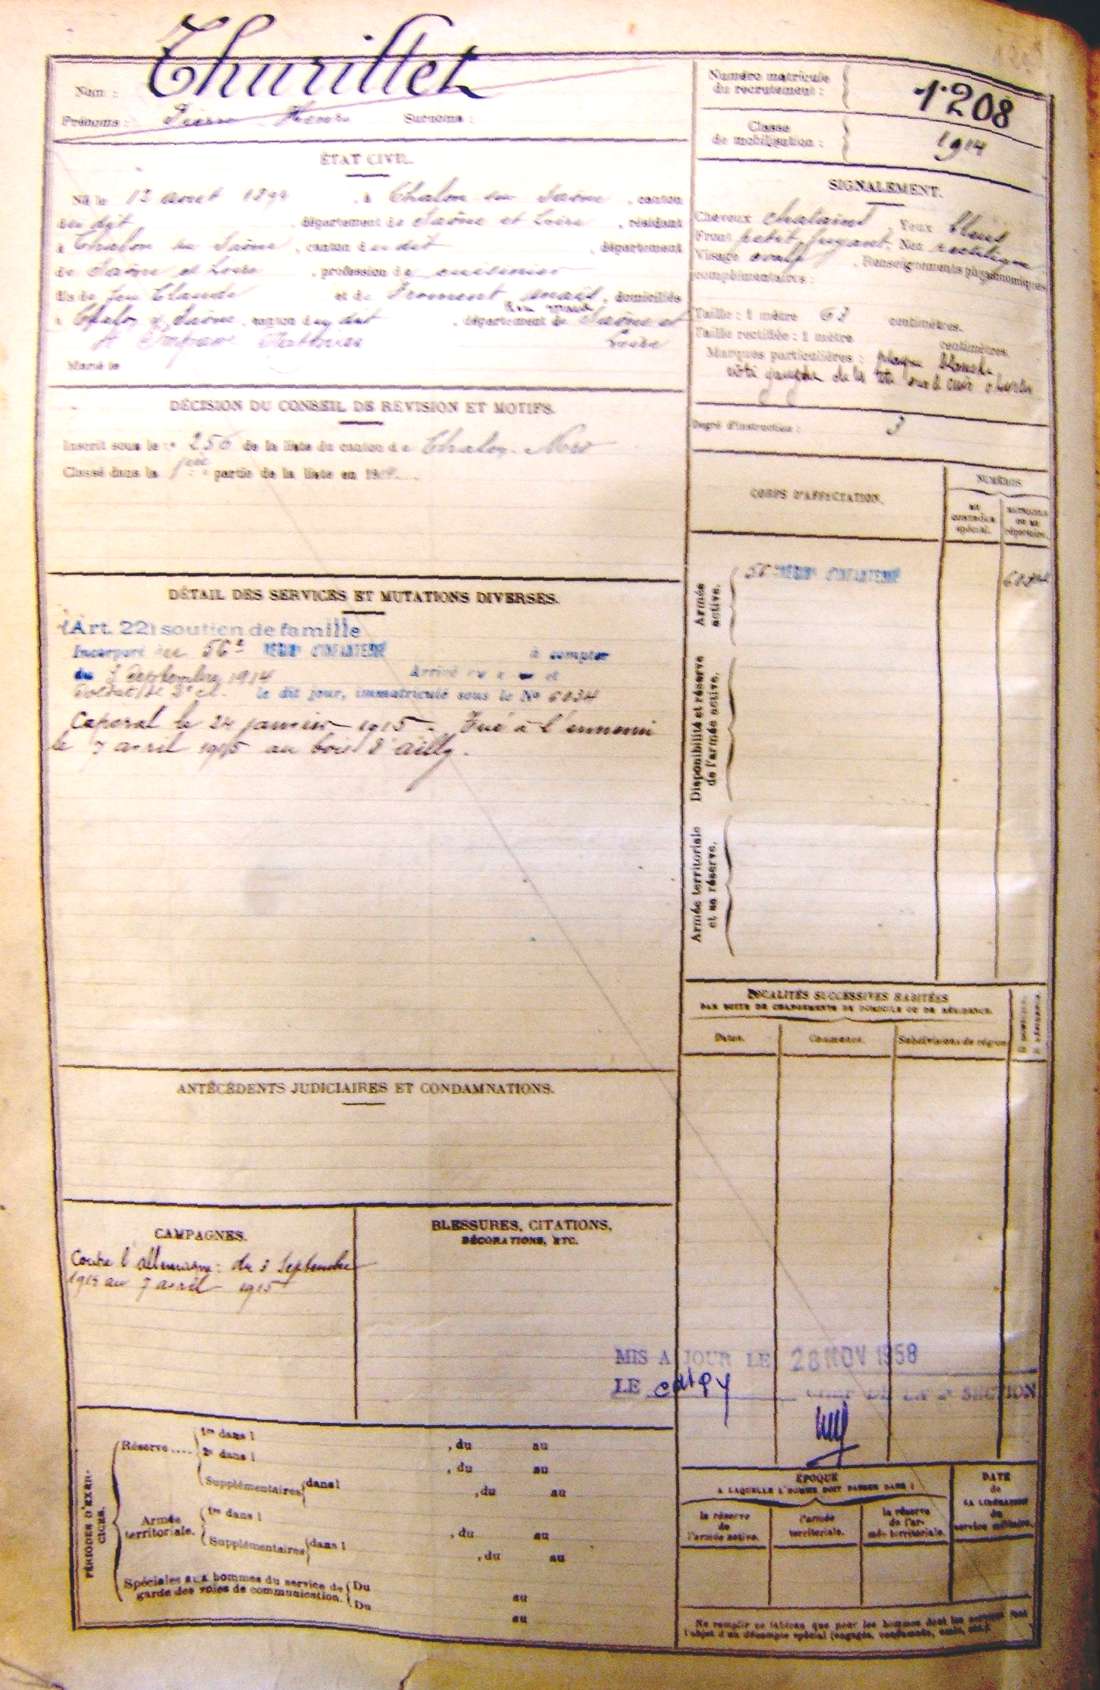 Nom : Thurillet
Prénoms : Pierre Henri Surnoms :
Numéro matricule
du recrutement : 1208
Classe
de mobilisation : 1914
ÉTAT CIVIL.
Né le 12 août 189 , à Chalon sur Saône , canton
du dit , département de Saône et Loire , résidant
à Chalon sur Saône , canton du dit , département
de Saône et Loire , profession de cuisinier
fils de feu Claude et de Froment , domiciliés
à Chalon s/ Saône , canton du dit , département de Saône et
Loire
Marié le
SIGNALEMENT.
Cheveux chatains Yeux bleus
Front petit, fuyant Nez rectiligne
Visage ovale . Renseignements physionomiques
complémentaires :
Taille : 1 mètre 62 centimètres.
Taille rectifiée : 1 mètre centimètres.
Marques particulières : plaque blanche
côté gauche de la tête sur le cuir chevelu
Degré d'instruction : 3
DÉCISION DU CONSEIL DE RÉVISION ET MOTIFS.
Inscrit sous le n° 256 de la liste du canton de Chalon-Nord
Classé dans la 1ère partie de la liste en 1914
CORPS D'AFFECTATION.
NUMÉROS
AU
CONTRÔLE
SPÉCIAL.
MATRICULE
OU AU
RÉPERTOIRE.
Armée
active.
56 RÉGIMt D'INFANTERIE
6034
Disponibilité et réserve
de l'armée active.
Armée territoriale
et sa réserve.
DÉTAIL DES SERVICES ET MUTATIONS DIVERSES.
(Art. 22) soutien de famille
Incorporé au 56e RÉGIMt D'INFANTERIE à compter
du 3 Septembre 1914 Arrivé au corps et
soldat de 2e cl. le dit jour, immatriculé sous le No 6034
Caporal le 24 janvier 1915. Tué à l'ennemi
le 7 avril 1915 au bois d'ailly.
LOCALITÉS SUCCESSIVES HABITÉES
PAR SUITE DE CHANGEMENTS DE DOMICILE OU DE RÉSIDENCE.
Dates. Communes. Subdivisions de région
ANTÉCÉDENTS JUDICIAIRES ET CONDAMNATIONS.
CAMPAGNES.
Contre l'allemagne : du 3 Septembre
1914 au 7 avril 1915
BLESSURES, CITATIONS,
DÉCORATIONS, ETC.
MIS A JOUR LE 28 NOV 1958
LE CHEF DE LA 2e SECTION
PÉRIODES D'EXER-
CICES.
Réserve.... 1re dans l , du au
2e dans l , du au
Supplémentaires dans l , du au
Armée
territoriale.
1re dans l , du au
Supplémentaires dans l , du au
Spéciales aux hommes du service de
garde des voies de communication.
Du au
Du au
ÉPOQUE
A LAQUELLE L'HOMME DOIT PASSER DANS :
la réserve
de
l'armée active.
l'armée
territoriale.
la réserve
de l'ar-
mée territoriale.
DATE
de
LA LIBÉRATION
du
service militaire.
Ne remplir ce tableau que pour les hommes dont les services font
l'objet d'un décompte spécial (engagés, condamnés, omis, etc.).